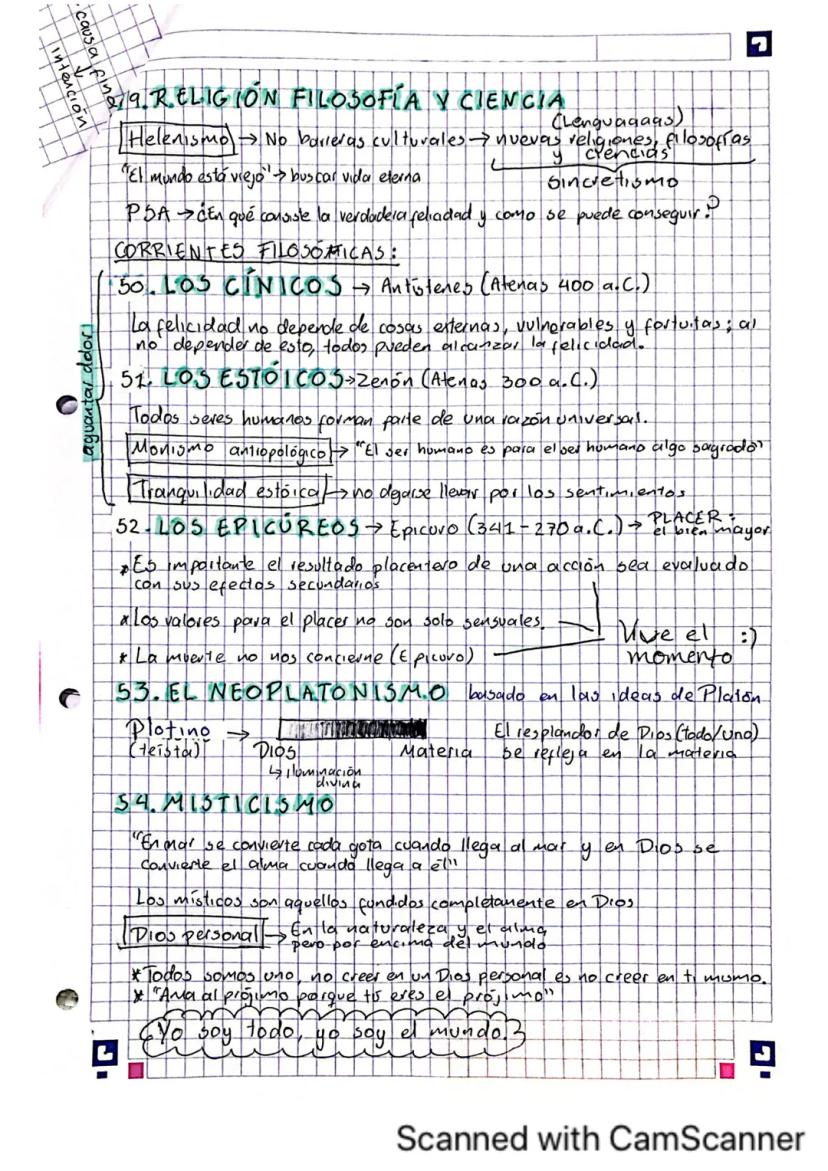 causa fin
↓
intención
49. RELIGIÓN FILOSOFÍA Y CIENCIA
(Lenguaaaas)
Helenismo → No barreras culturales → nuevas religiones, filosofías
y ciencias
"El mundo está viejo" → buscar vida eterna
sincretismo
PSA → ¿En qué consiste la verdadera felicidad y como se puede conseguir?
CORRIENTES FILOSÓFICAS:
aguantar dolor
50. LOS CÍNICOS → Antístenes (Atenas 400 a.C.)
La felicidad no depende de cosas externas, vulnerables y fortuitas; al
no depender de esto, todos pueden alcanzar la felicidad.
51. LOS ESTÓICOS → Zenón (Atenas 300 a.C.)
Todos seres humanos forman parte de una razón universal.
Monismo antropológico → "El ser humano es para el ser humano algo sagrado"
Tranquilidad estóica → no dejarse llevar por los sentimientos
52. LOS EPICÚREOS → Epicuro (341-270 a.C.) → PLACER:
el bien mayor
* Es importante el resultado placentero de una acción sea evaluado
con sus efectos secundarios
* Los valores para el placer no son solo sensuales
* La muerte no nos concierne (Epicuro)
Vive el :)
momento
53. EL NEOPLATONISMO basado en las ideas de Platón
Plotino →
(teísta)
Dios Materia
↳ iluminación
divina
El resplandor de Dios (todo/uno)
se refleja en la materia
54. MISTICISMO
"En mar se convierte cada gota cuando llega al mar y en Dios se
convierte el alma cuando llega a él"
Los místicos son aquellos fundidos completamente en Dios
Dios personal → En la naturaleza y el alma
pero por encima del mundo
* Todos somos uno, no creer en un Dios personal es no creer en ti mismo.
* "Ama al prójimo porque tú eres el prójimo"
Yo soy todo, yo soy el mundo.
Scanned with CamScanner